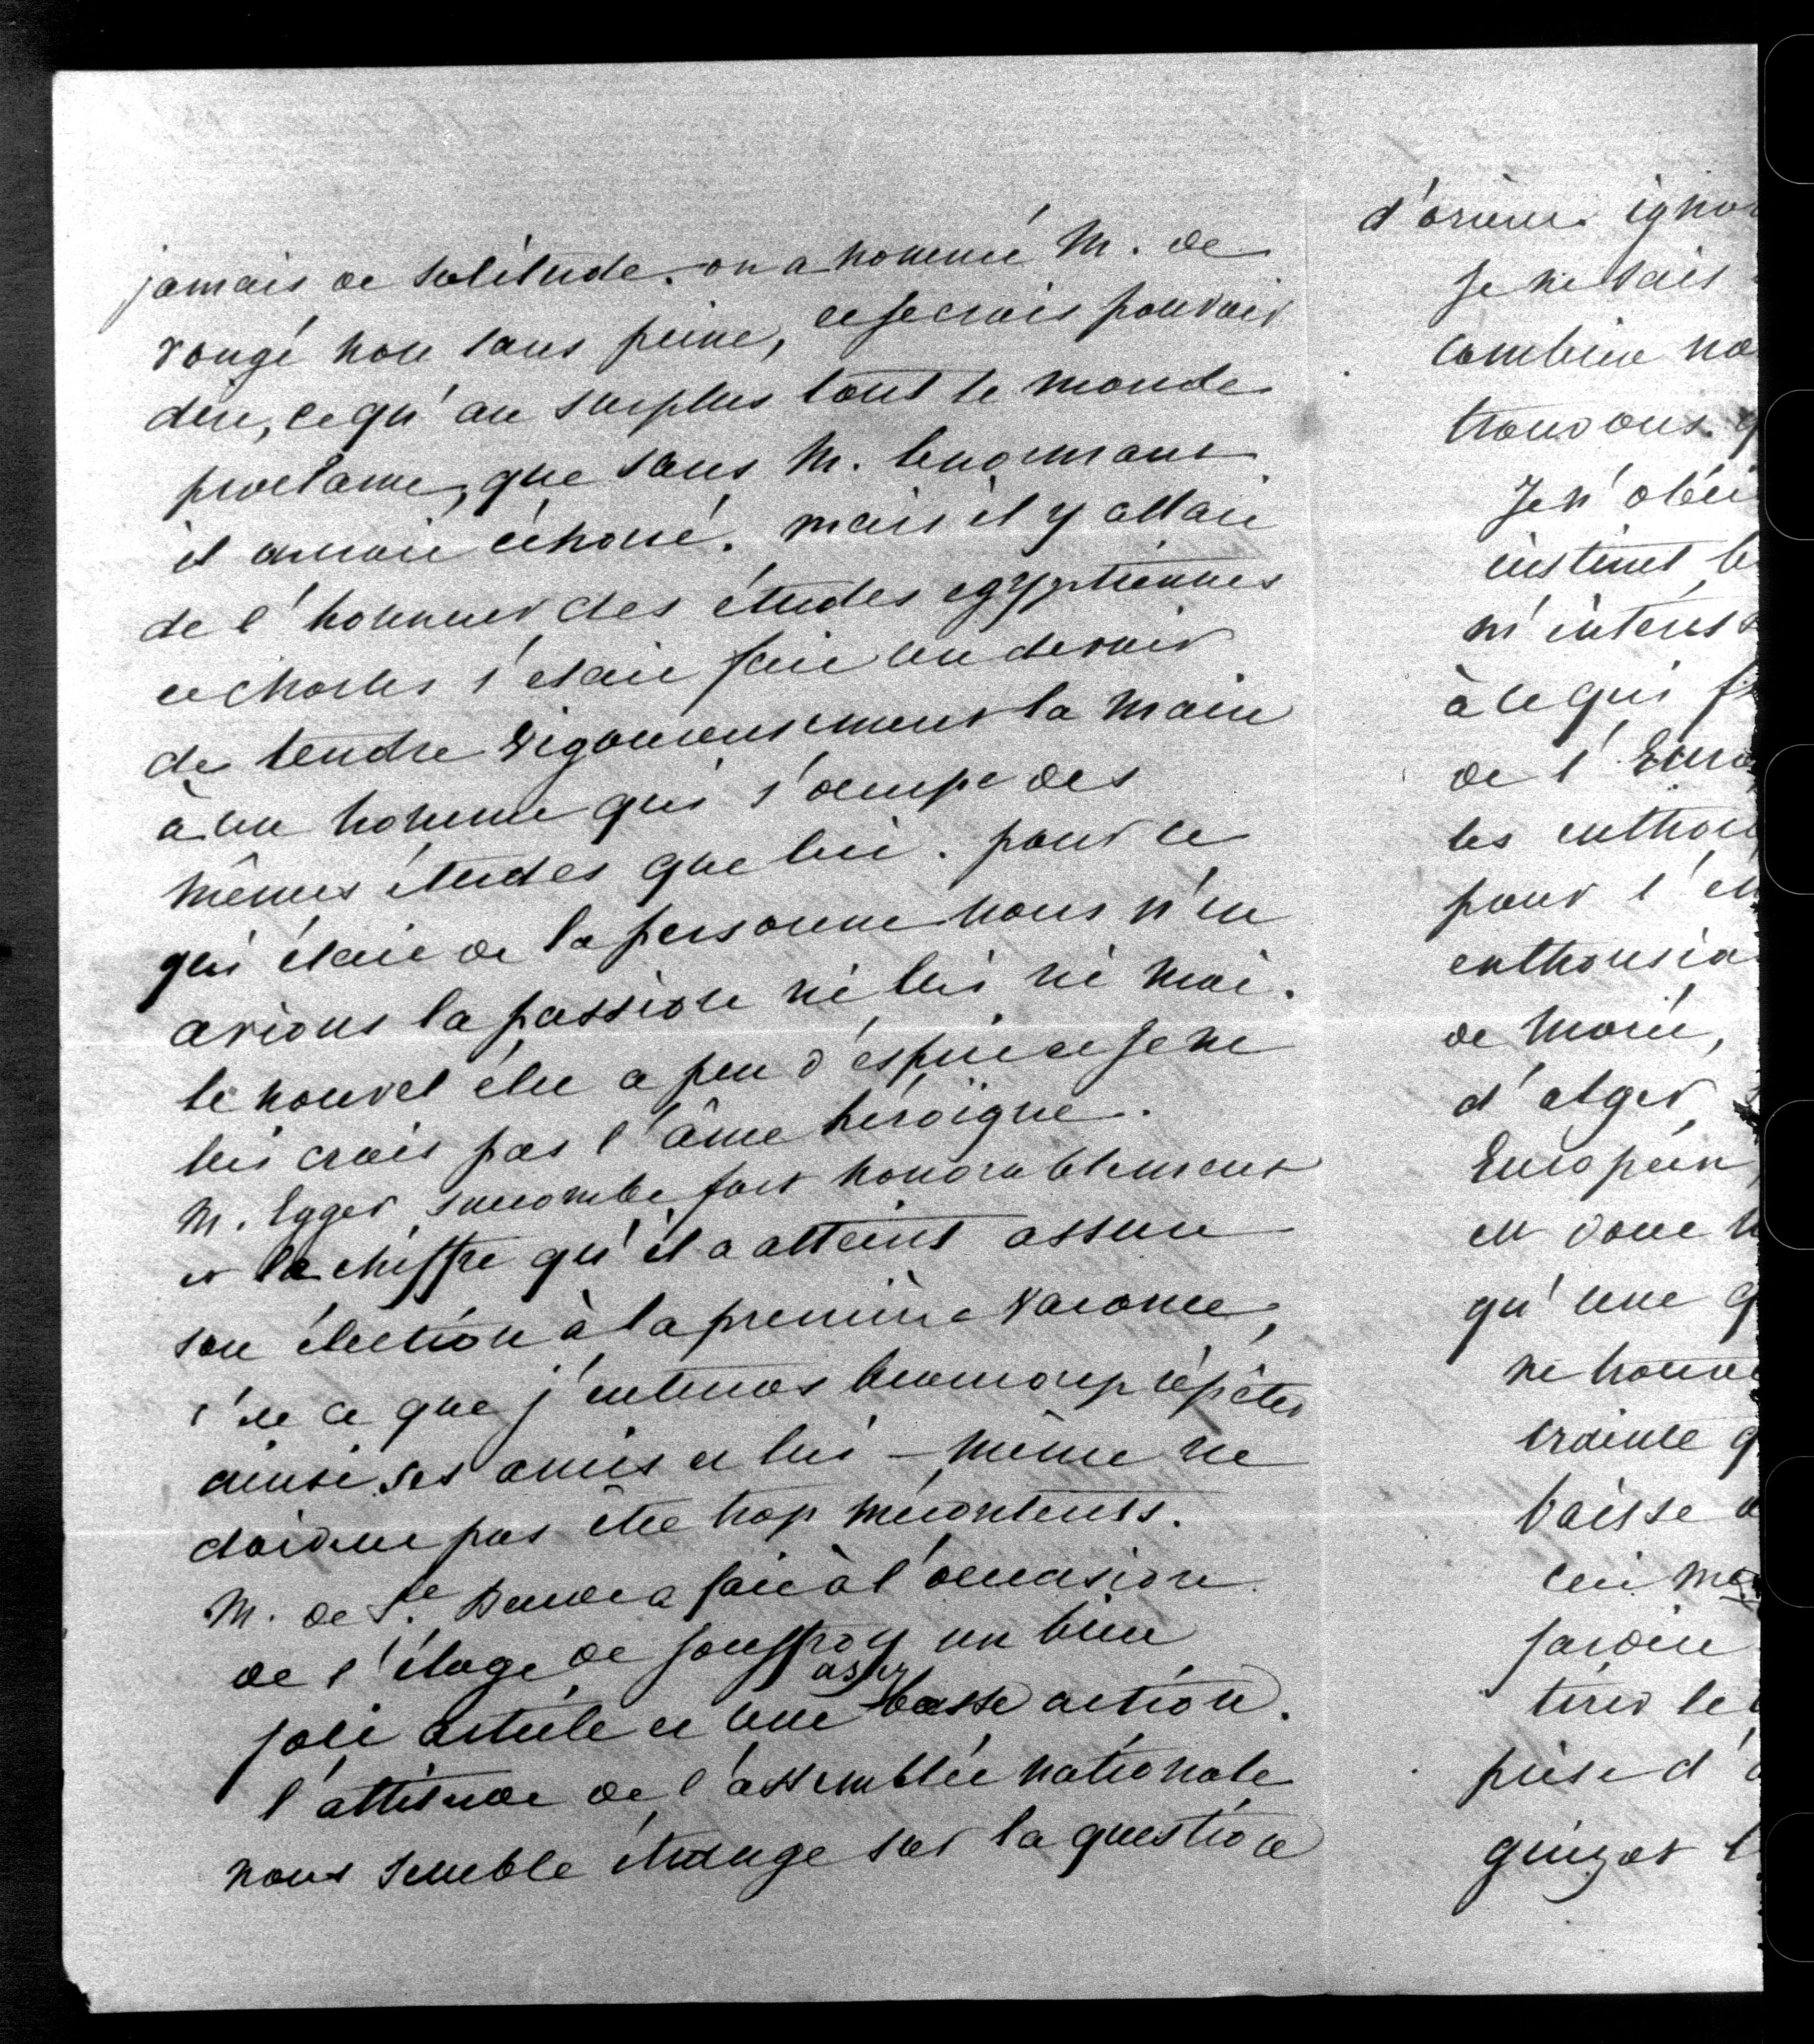 jamais de solitude. on a nommé M. de
rougé non sans peine, et je crois pouvoir
dire, ce qu'au surplus tout le monde
proclame, que sans M. lenormant
il auroit échoué. mais il y alloit
de l'honneur des études egyptiennes
et Charles s'étoit fait un devoir
de tendre vigoureusement la main
à un homme qui s'occupe des
mêmes études que lui. pour ce
qui étoit de la personne nous n'en
avions la passion ni lui ni moi.
le nouvel élu a peu d'esprit et je ne
lui crois pas l'âme héroïque.
M. Egger succombe fort honorablement
et le chiffre qu'il a atteint assure
son élection à la première vacance,
c'est ce que j'entends beaucoup répéter
ainsi ses amis et lui-même ne
doivent pas être trop mécontents.
M. de Ste Beuve a fait à l'occasion
de l'éloge de Jouffroy un bien
joli article et une assez basse action.
l'attitude de l'assemblée nationale
nous semble étrange sur la question
d'orient
Je ne sais
combien
trouvons
Je n'
instinct
m'
à ce qui
de l'
les
pour l'
de
d'alger
Européen
est donc
qu'une
ne
crainte
baisse
jardin
tirer le
prise d'
guizot